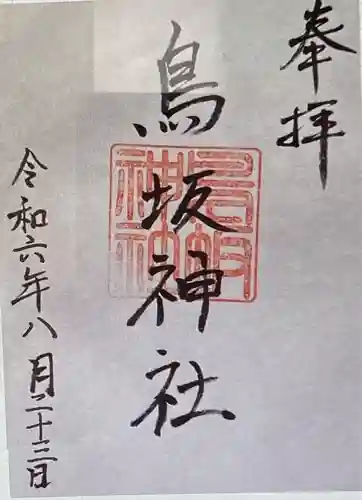 奉拝
鳥坂神社
鳥坂神社
令和六年八月二十三日